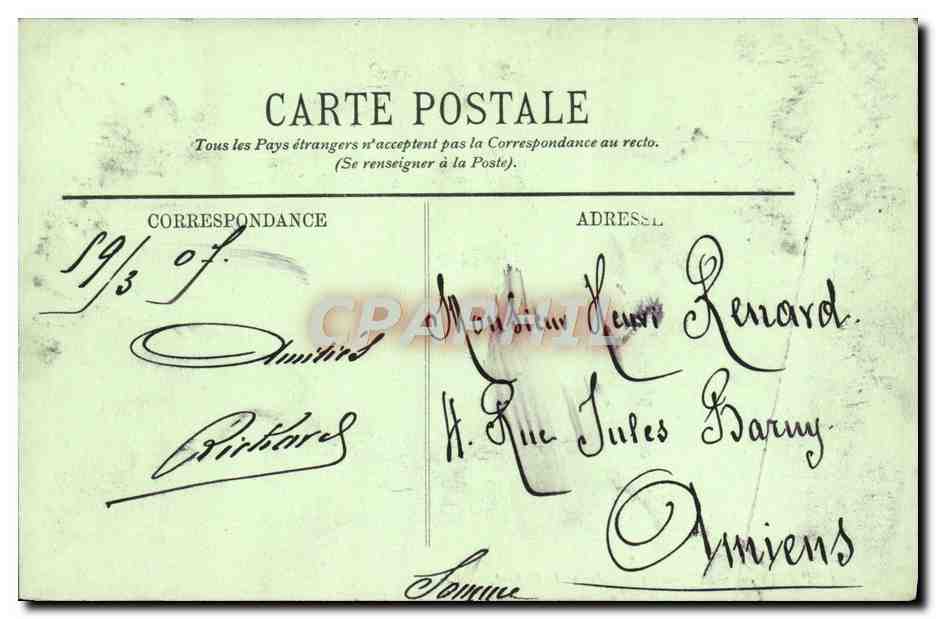 CARTE POSTALE
Tous les Pays étrangers n'acceptent pas la Correspondance au recto.
(Se renseigner à la Poste).
CORRESPONDANCE
19/3 07.
Amitiés
Richard
ADRESSE
Monsieur Henri Renard.
4. Rue Jules Barny
Amiens
Somme
CPARPHIL